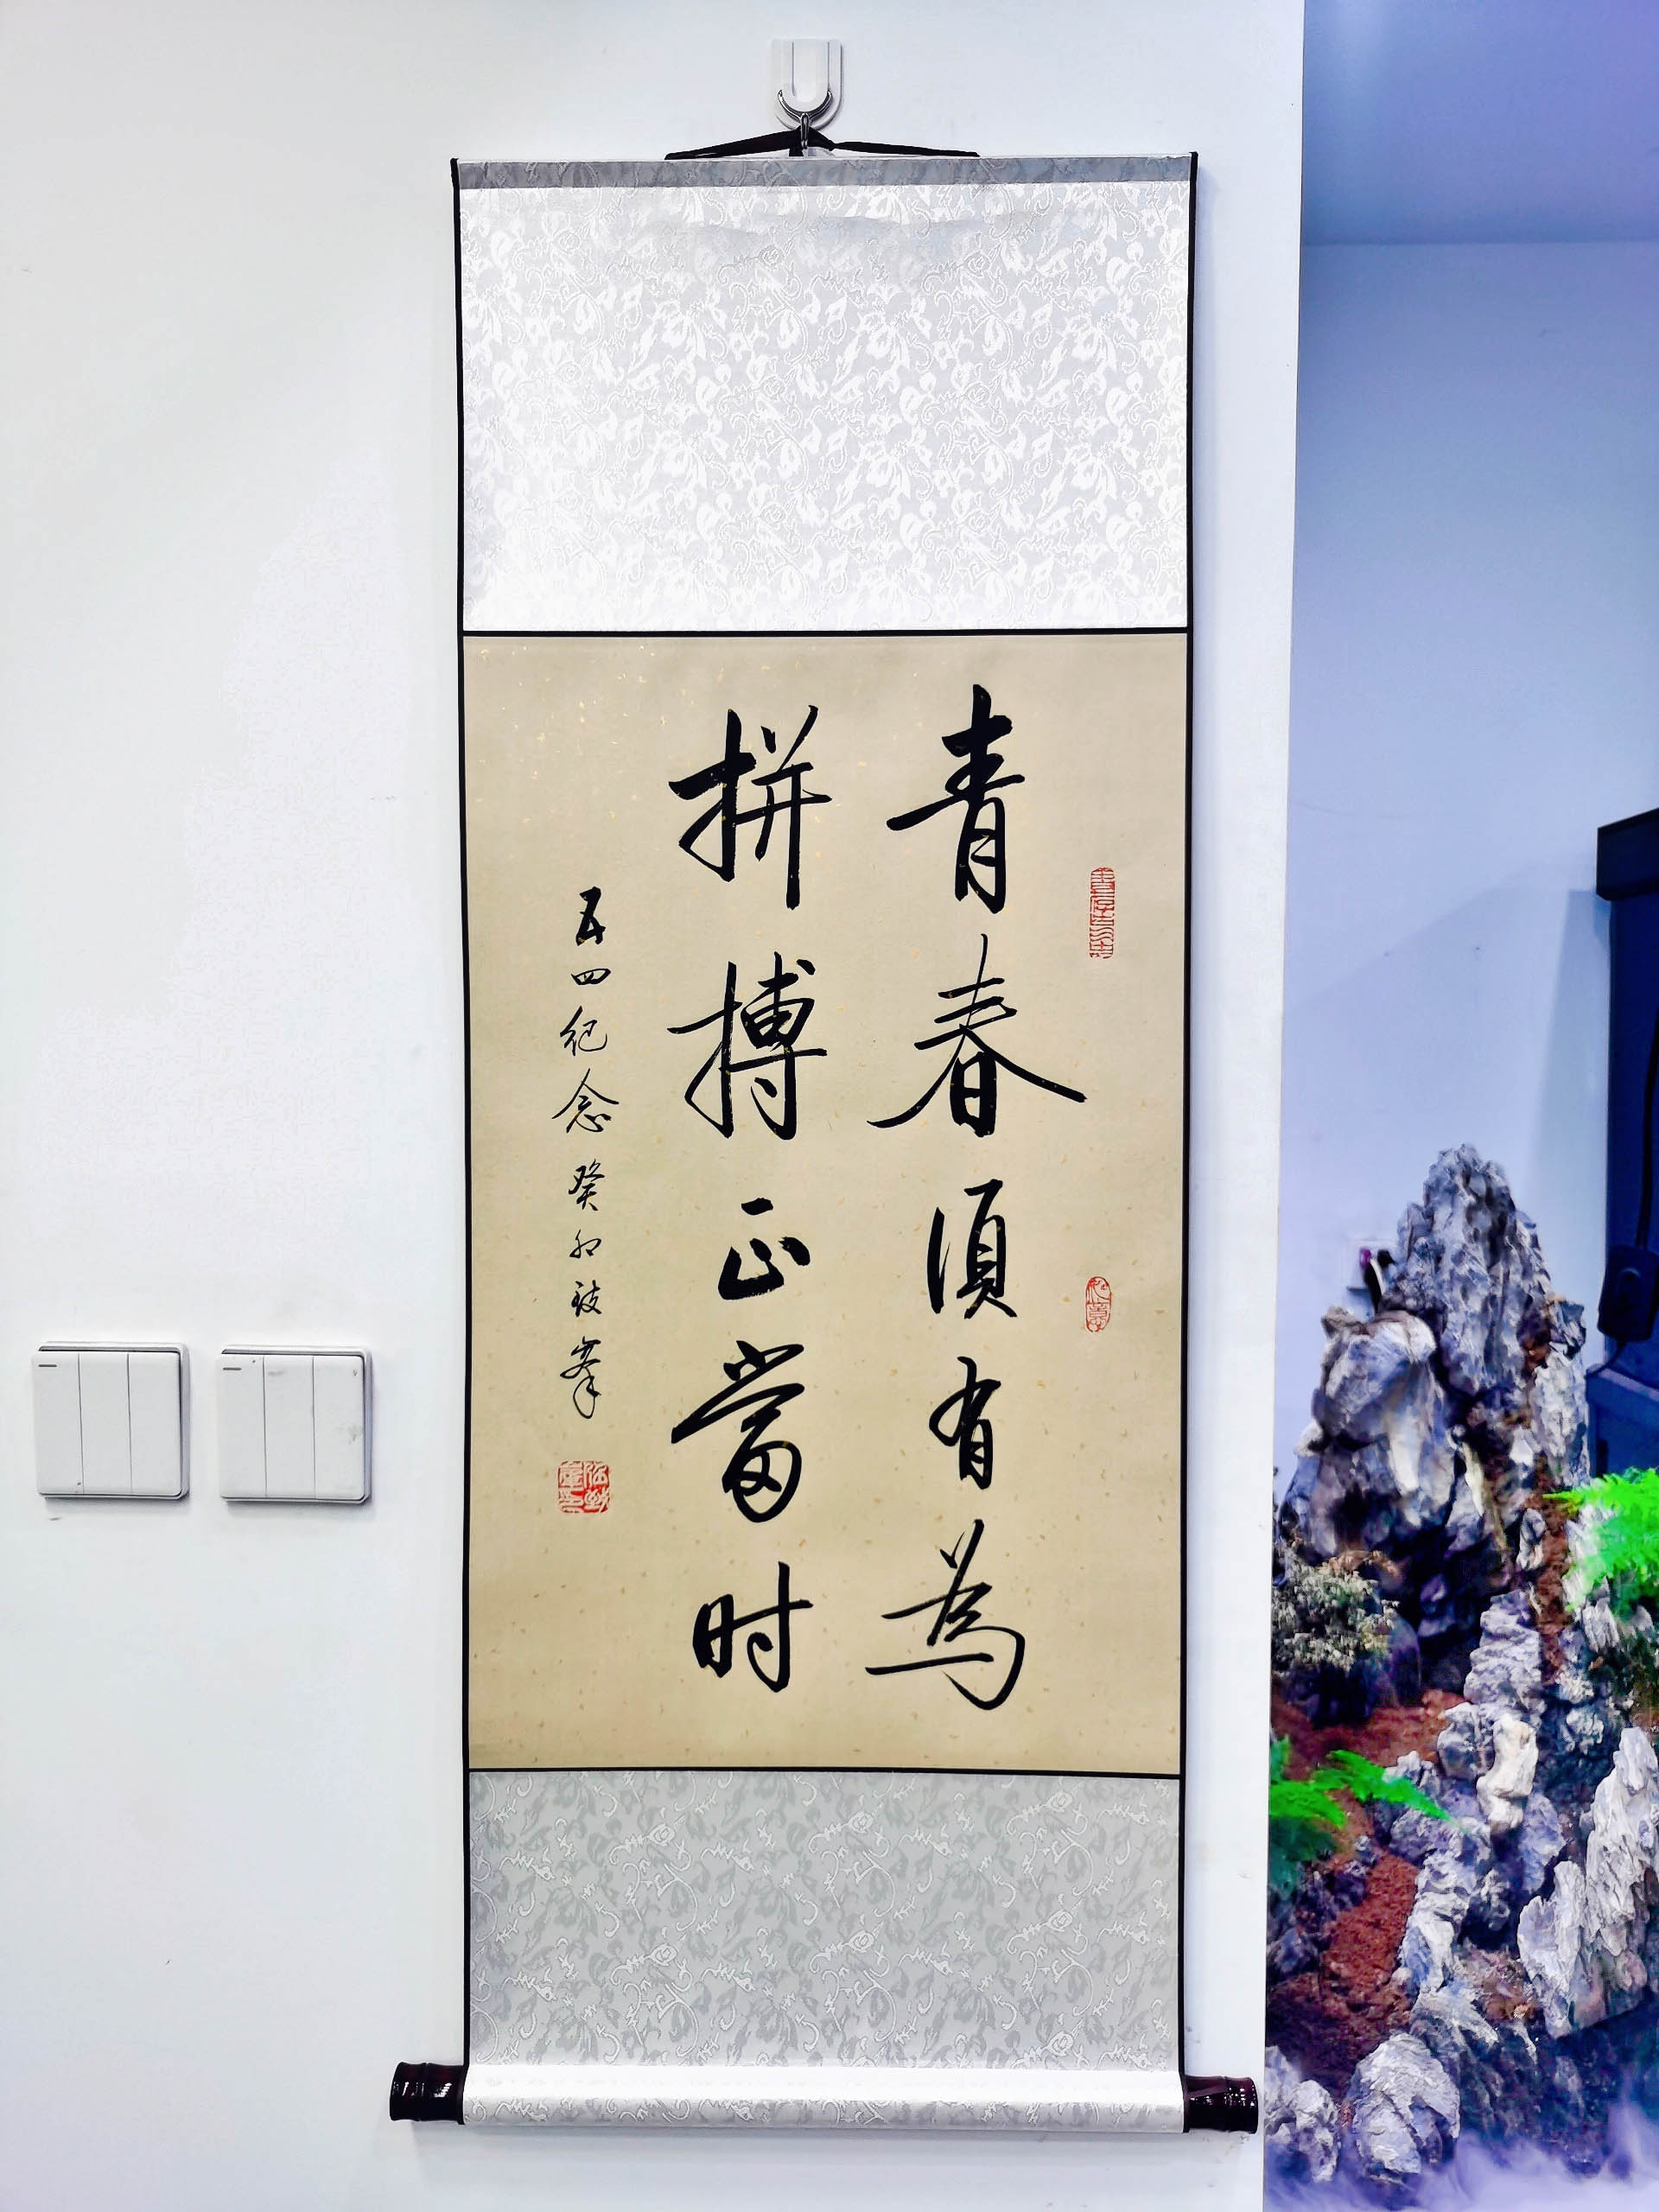 青春須有為
拼搏正當时
五四纪念 癸卯 筱峯